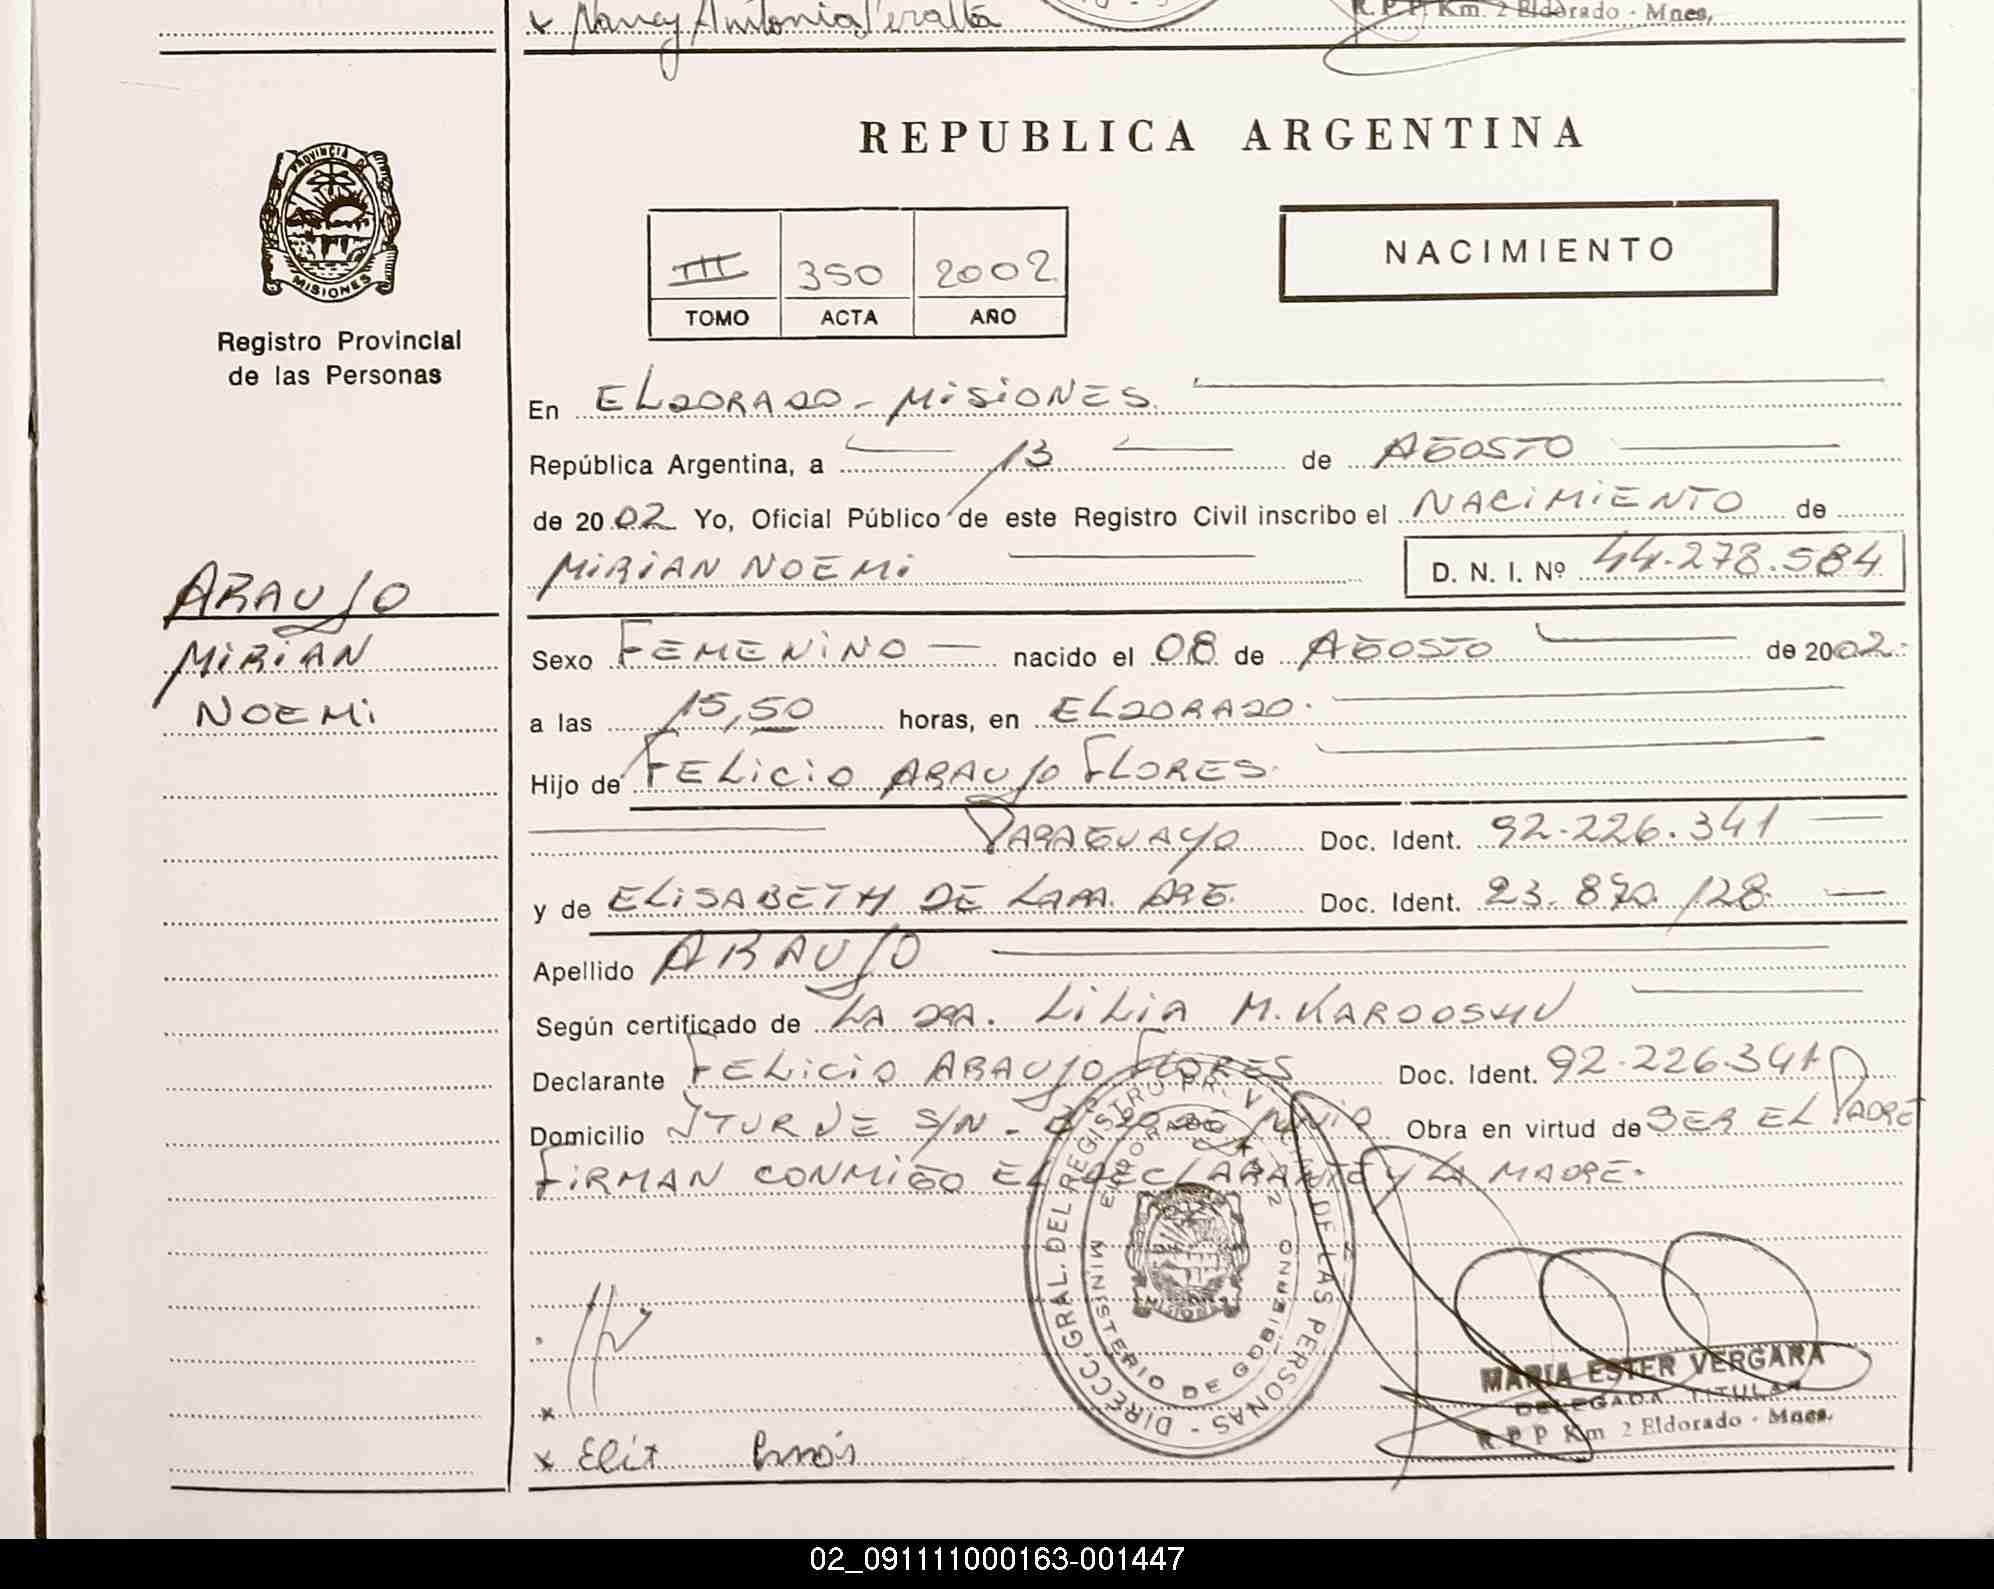 Nancy Antonia Peralta
R. P P. Km. 2 Eldorado - Mnes,
PROVINCIA DE
MISIONES
Registro Provincial
de las Personas
REPUBLICA ARGENTINA
III 350 2002
TOMO ACTA AÑO
NACIMIENTO
En ELDORADO - MISIONES.
República Argentina, a 13 de AGOSTO
de 2002 Yo, Oficial Público de este Registro Civil inscribo el NACIMIENTO de
MIRIAN NOEMI D. N. I. Nº 44.278.584
ARAUJO
MIRIAN
NOEMI
Sexo FEMENINO nacido el 08 de AGOSTO de 2002.
a las 15,50 horas, en ELDORADO.
Hijo de FELICIO ARAUJO FLORES.
PARAGUAYO Doc. Ident. 92.226.341
y de ELISABETH DE ARG. Doc. Ident. 23.870.128.
Apellido ARAUJO
Según certificado de LA DRA. LILIA M. KAROOSHU
Declarante FELICIO ARAUJO FLORES Doc. Ident. 92.226.341
Domicilio S/N - Obra en virtud de SER EL PADRE
FIRMAN CONMIGO EL DECLARANTE Y LA MADRE.
DIRECC. GRAL. DEL REGISTRO PROVINCIAL DE LAS PERSONAS -
MINISTERIO DE GOBIERNO
ELDORADO
MARIA ESTER VERGARA
DELEGADA TITULAR
R. P P Km 2 Eldorado - Mnes.
x
x
02_091111000163-001447